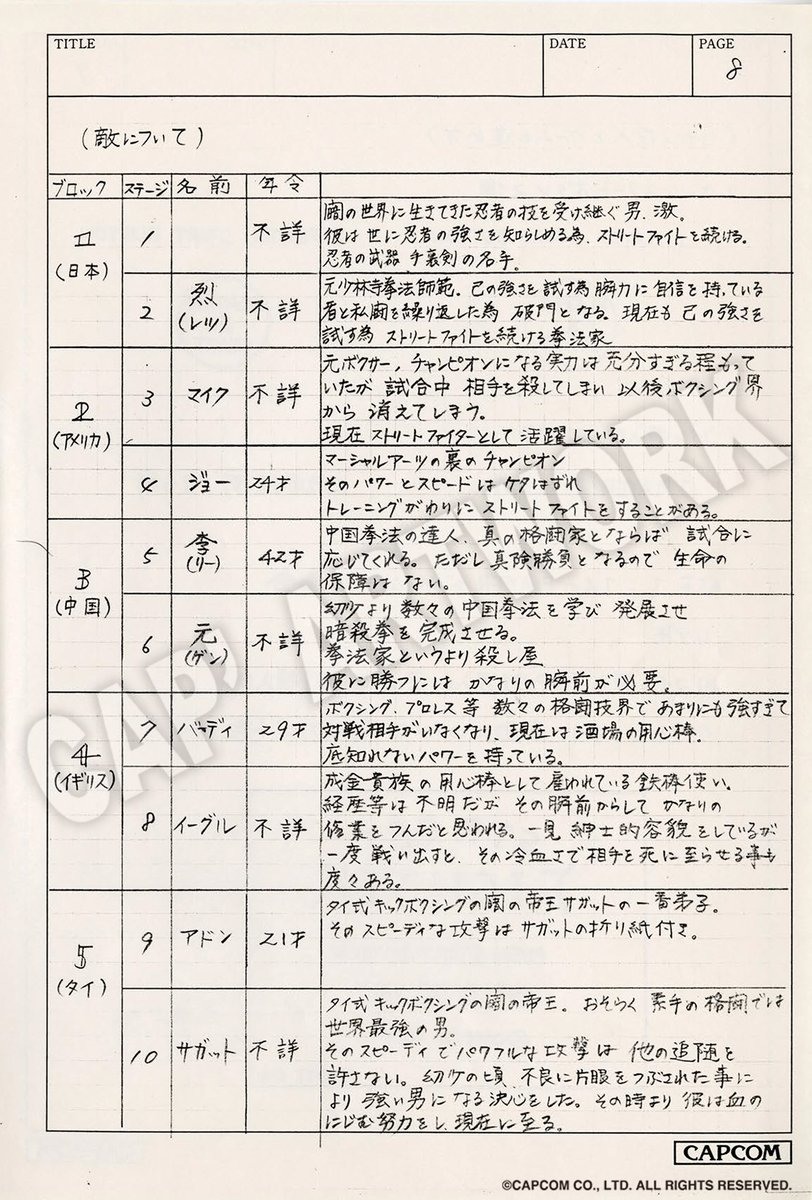 TITLE
DATE
PAGE
8
(敵について)
ブロック ステージ 名前 年令
1
(日本)
1
不詳
闇の世界に生きてきた忍者の技を受け継ぐ男、激。
彼は世に忍者の強さを知らしめる為、ストリートファイトを続ける。
忍者の武器 手裏剣の名手。
2
烈
(レツ)
不詳
元少林寺拳法師範。己の強さを試す為 腕力に自信を持っている
者と私闘を繰り返した為 破門となる。現在も 己の強さを
試す為 ストリートファイトを続ける拳法家
2
(アメリカ)
3
マイク
不詳
元ボクサー, チャンピオンになる実力は充分すぎる程もって
いたが 試合中 相手を殺してしまい 以後ボクシング界
から 消えてしまう。
現在 ストリートファイターとして 活躍している。
4
ジョー
24才
マーシャルアーツの裏の チャンピオン
そのパワーとスピードは ケタはずれ
トレーニングがわりに ストリートファイトをすることがある。
3
(中国)
5
李
(リー)
42才
中国拳法の達人、真の格闘家とならば 試合に
応じてくれる。ただし 真険勝負となるので 生命の
保障は ない。
6
元
(ゲン)
不詳
幼少より 数々の中国拳法を 学び 発展させ
暗殺拳を完成させる。
拳法家というより 殺し屋
彼に勝つには かなりの 腕前が必要。
4
(イギリス)
7
バーディ
29才
ボクシング、プロレス等 数々の格闘技界で あまりにも強すぎて
対戦相手がいなくなり、現在は 酒場の用心棒。
底知れないパワーを 持っている。
8
イーグル
不詳
成金貴族の用心棒として雇われている 鉄棒使い。
経歴等は 不明だが その腕前からして かなりの
修業をつんだと思われる。一見 紳士的容貌をしているが
一度 戦い出すと、その冷血さで相手を死に至らせる事も
度々ある。
5
(タイ)
9
アドン
21才
タイ式キックボクシングの闇の帝王サガットの一番弟子。
そのスピーディな攻撃は サガットの折り紙付き。
10
サガット
不詳
タイ式キックボクシングの闇の帝王。おそらく 素手の格闘では
世界最強の男。
そのスピーディで パワフルな攻撃は 他の追随を
許さない。幼少の頃 不良に片眼をつぶされた事に
より 強い男になる決心をした。その時より 彼は血の
にじむ努力をし、現在に至る。
CAP' ARTWORK
CAPCOM
©CAPCOM CO., LTD. ALL RIGHTS RESERVED.